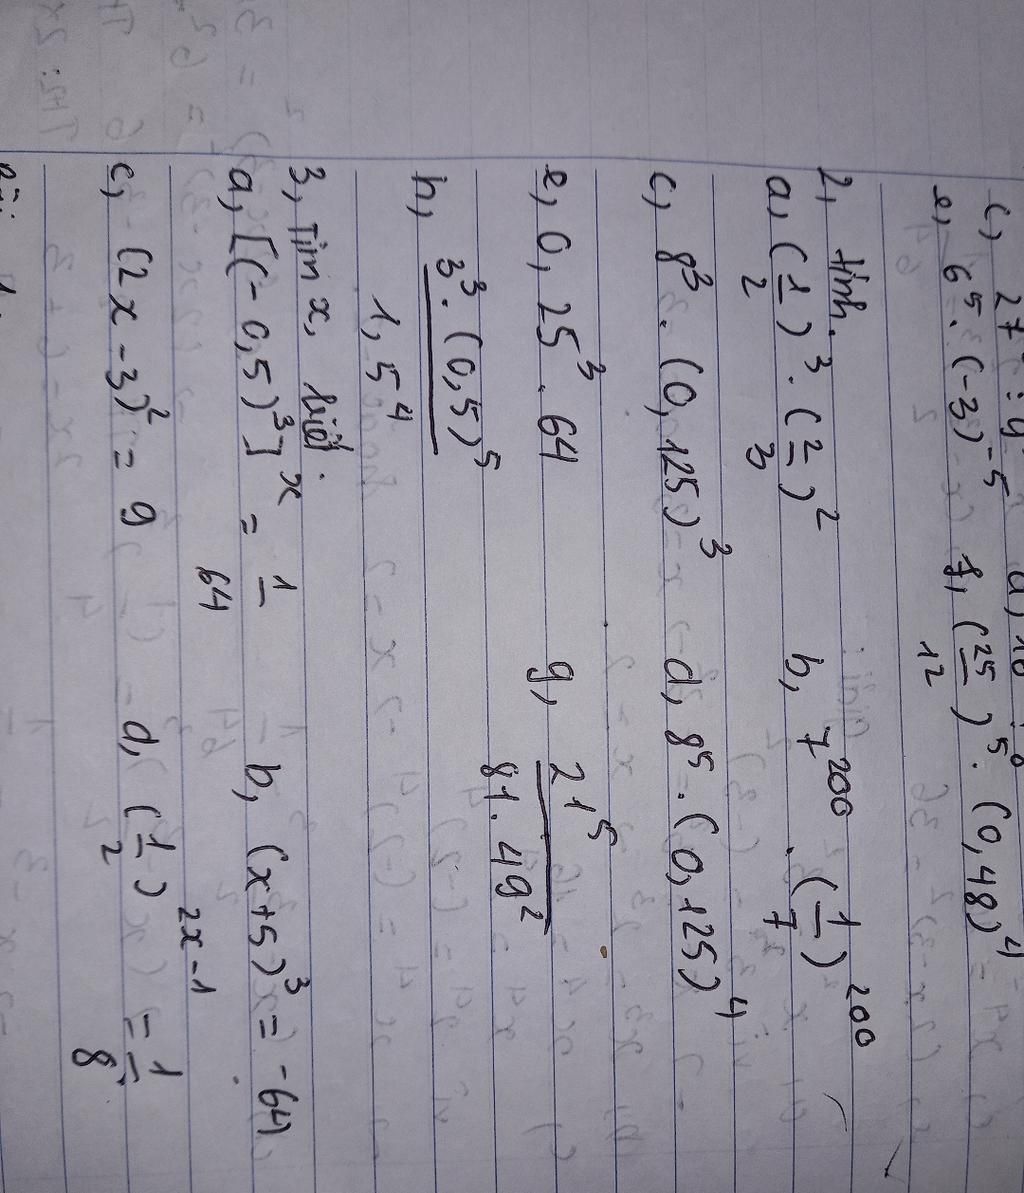 c, 27 : 9
e, 6⁵ . (-3)⁻⁵ f, (25/12)⁵ . (0,48)⁴
2, tính.
a, (1/2)³ . (2/3)² b, 7²⁰⁰ . (1/7)²⁰⁰
c, 8³ . (0,125)³ d, 8⁵ . (0,125)⁴
e, 0,25³ . 64 g, 21⁵/81.49²
h, 3³.(0,5)⁵/1,5⁴
3, Tìm x, biết.
a, [(-0,5)³]ˣ = 1/64 b, (x+5)³ = -64
c, (2x-3)² = 9 d, (1/2)²ˣ⁻¹ = 1/8